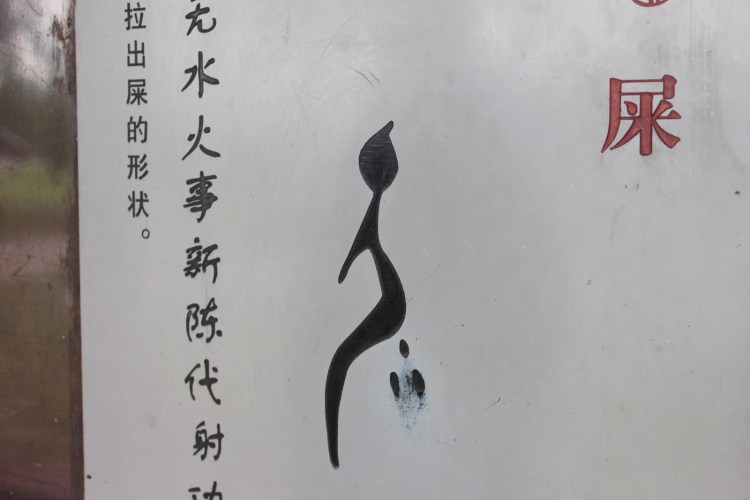 屎
水火事新陈代射
拉出屎的形状。